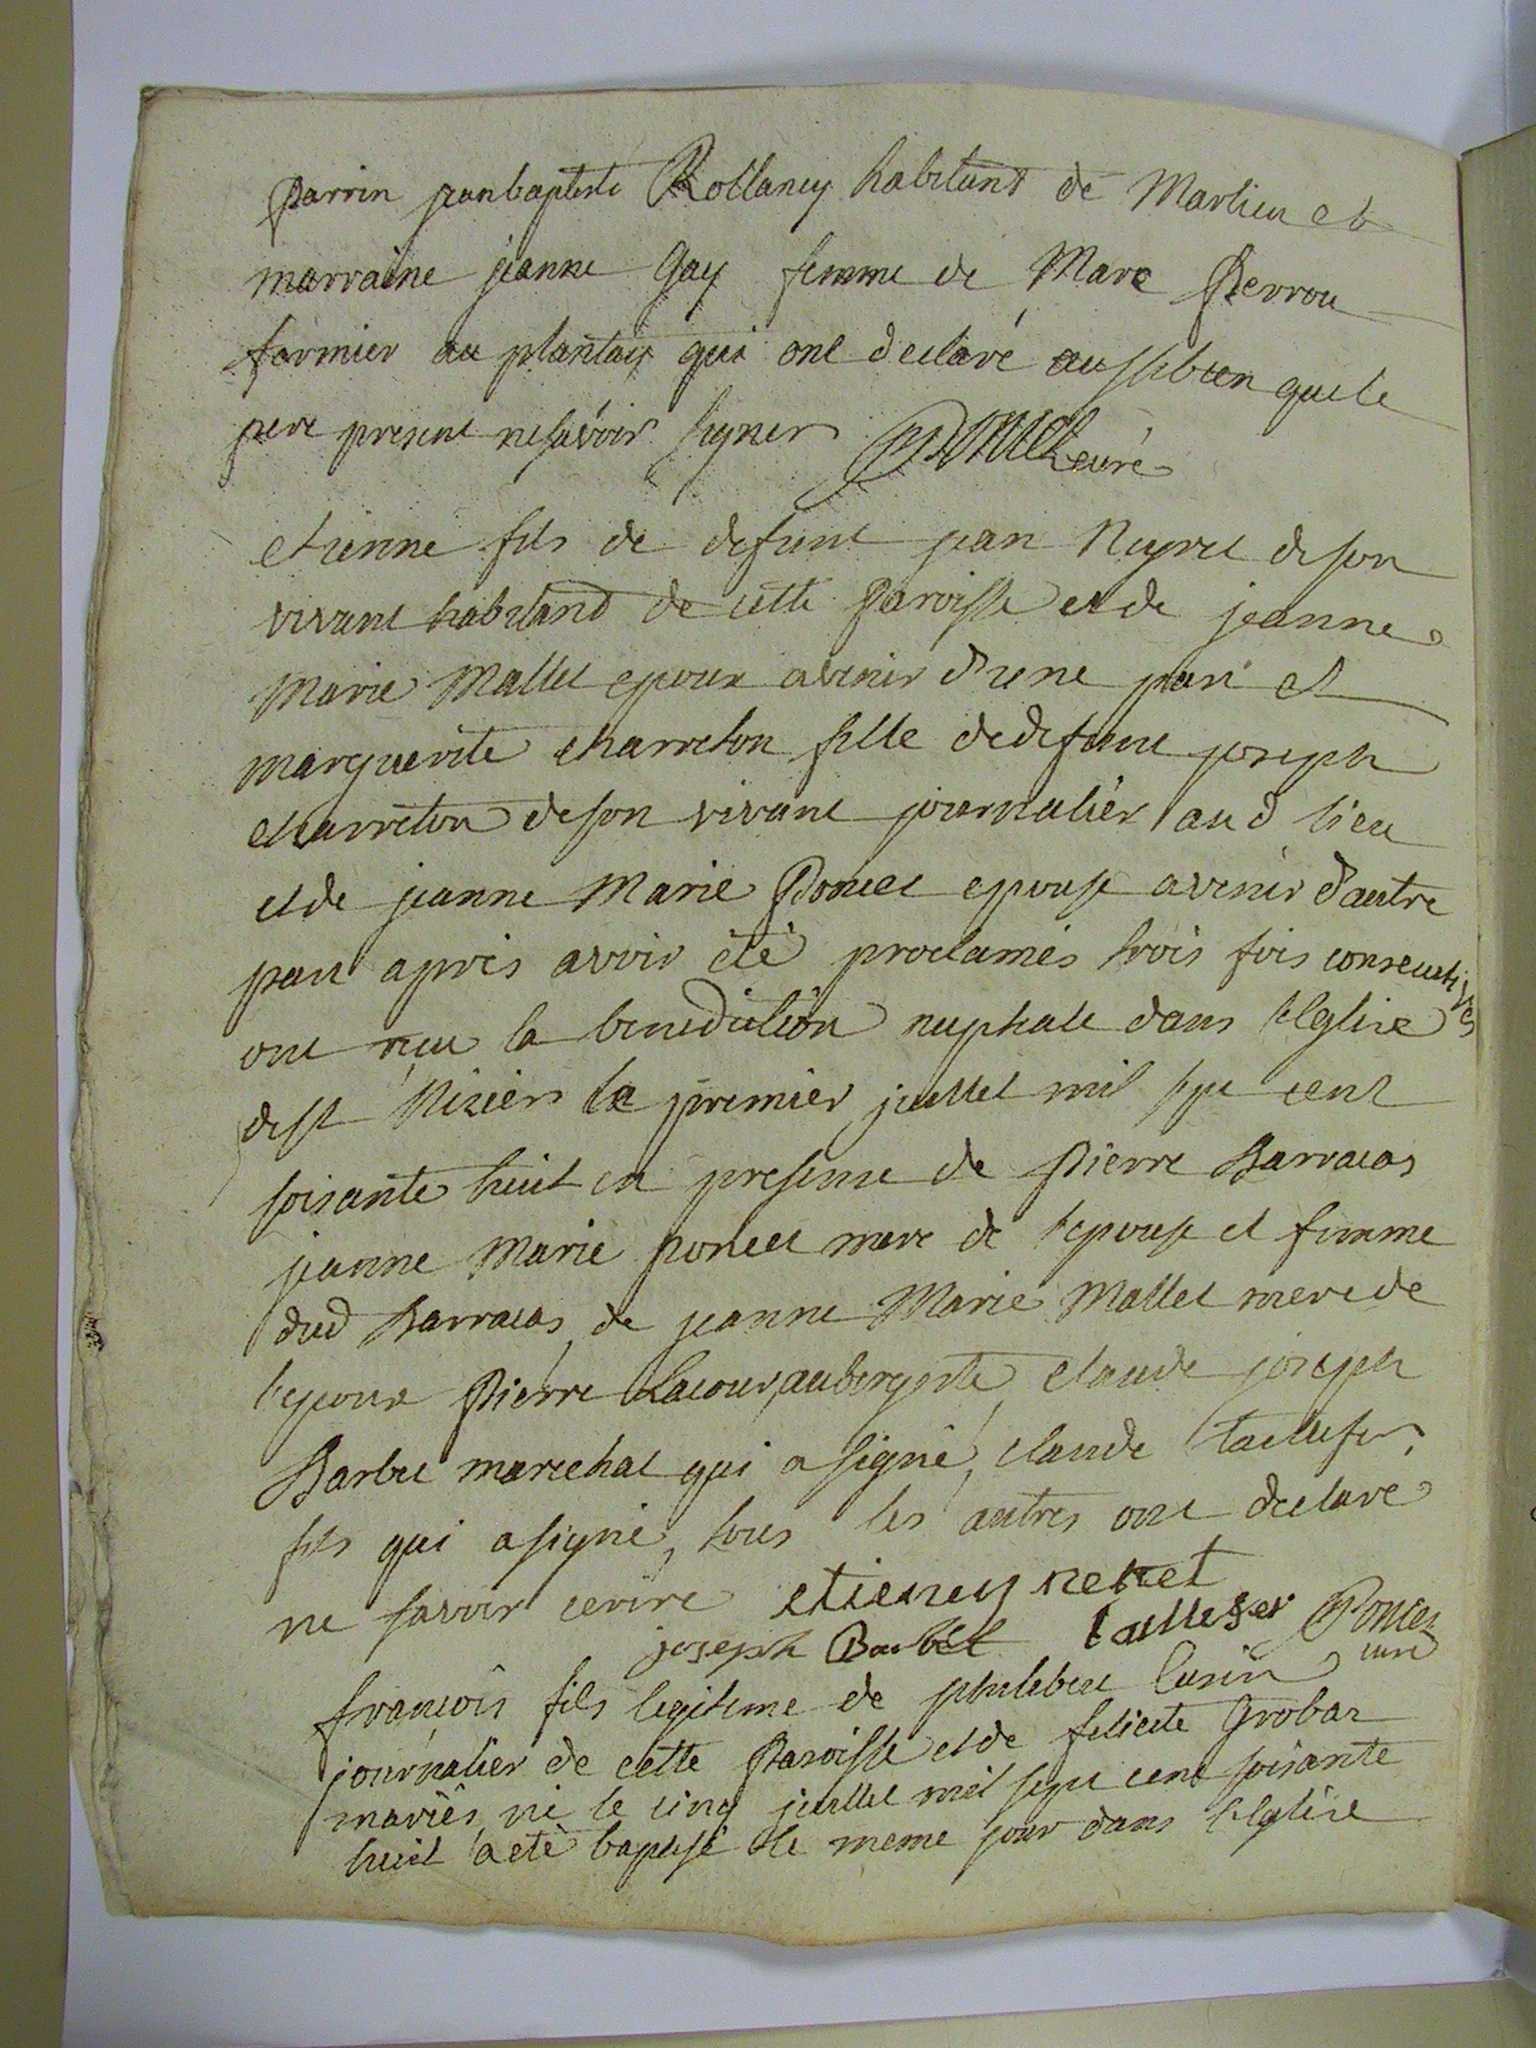 parrin jeanbaptiste Rollancy habitant de Marlieu et
marraine jeanne Gay femme de Marc Perrou
farmier au plantay qui ont declaré aussibien quele
pere present nesavoir signer Poncet curé
etienne fils de defunt jean Neyret deson
vivant habitand de cette Paroisse et de jeanne
Marie Mallet epoux avenir d'une part et
marguerite charreton fille dedefunt joseph
charreton deson vivant journalier aud lieu
et de jeanne Marie Poncet epouse avenir d'autre
part après avoir été proclamés trois fois consecutives
ont reçu la benediction nuptiale dans l'Eglise
de st Nizier le premier juillet mil sept cent
soisante huit en presence de Pierre Barracas
jeanne Marie poncet mere de l'epouse et femme
dud Barracas de jeanne Marie Mallet mere de
l'epoux Pierre Lacour aubergiste, claude joseph
Barbet marechal qui a signé, claude taillefer
fils qui a signé, tous les autres ont declaré
ne savoir ecrire etieney neret
joseph Barbet taillefer Poncet
curé
françois fils legitime de philebert Cusin
journalier de cette Paroisse et de felicite Grobaz
mariés né le cinq juillet mil sept cent soisante
huit a été baptisé le meme jour dans l'Eglise